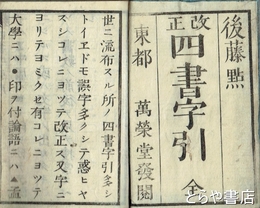 後藤點
改正
四書字引 全
東都 萬榮堂發閲
世ニ流布スル所ノ四書字引多シ
トイエドモ誤字多クシテ惑ヒヤ
スシコレニヨツテ改正ス又字ニ
ヨリテヨミクセ有コレニヨツテ
大學ニハ・印ヲ付論語ニハ▲孟
とらや書店